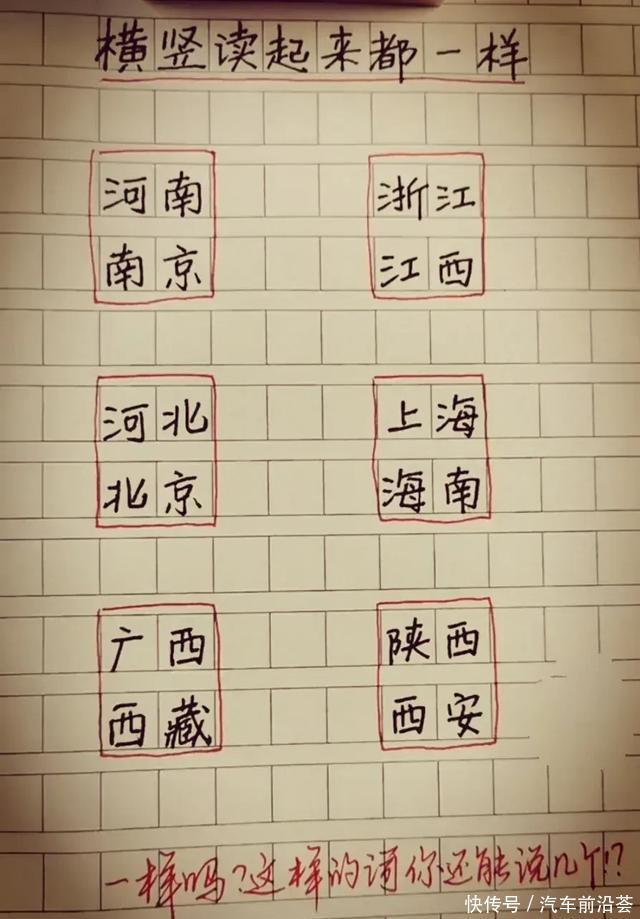 横竖读起来都一样
河南 浙江
南京 江西
河北 上海
北京 海南
广西 陕西
西藏 西安
一样吗?这样的词你还能说几个!?
快传号/汽车前沿荟